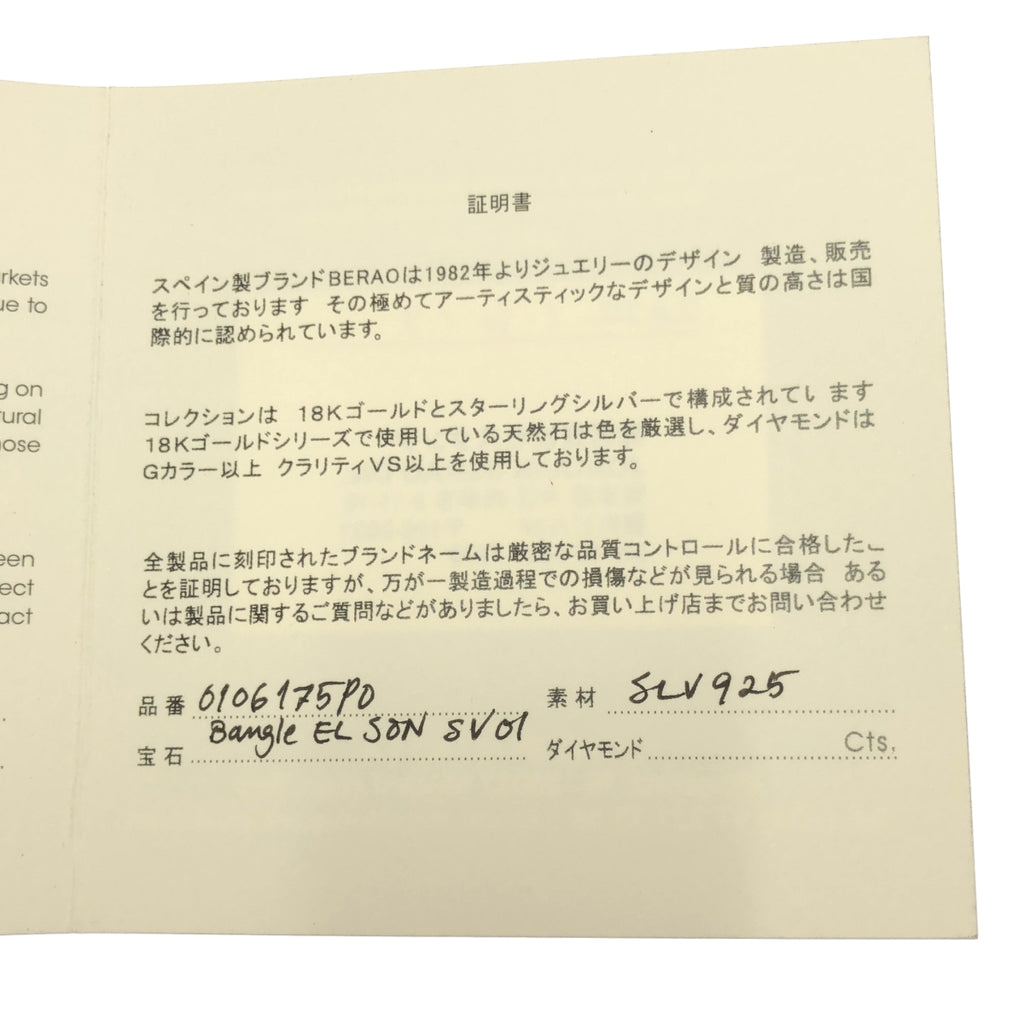 rkets
ue to
g on
tural
hose
een
ect
act
証明書
スペイン製ブランドBERAOは1982年よりジュエリーのデザイン 製造、販売
を行っております その極めてアーティスティックなデザインと質の高さは国
際的に認められています。
コレクションは 18Kゴールドとスターリングシルバーで構成されています
18Kゴールドシリーズで使用している天然石は色を厳選し、ダイヤモンドは
Gカラー以上 クラリティVS以上を使用しております。
全製品に刻印されたブランドネームは厳密な品質コントロールに合格したこ
とを証明しておりますが、万が一製造過程での損傷などが見られる場合 ある
いは製品に関するご質問などがありましたら、お買い上げ店までお問い合わせ
ください。
品番 0106175PO 素材 SLV925
Bangle EL SON SV01
宝石 ダイヤモンド Cts,